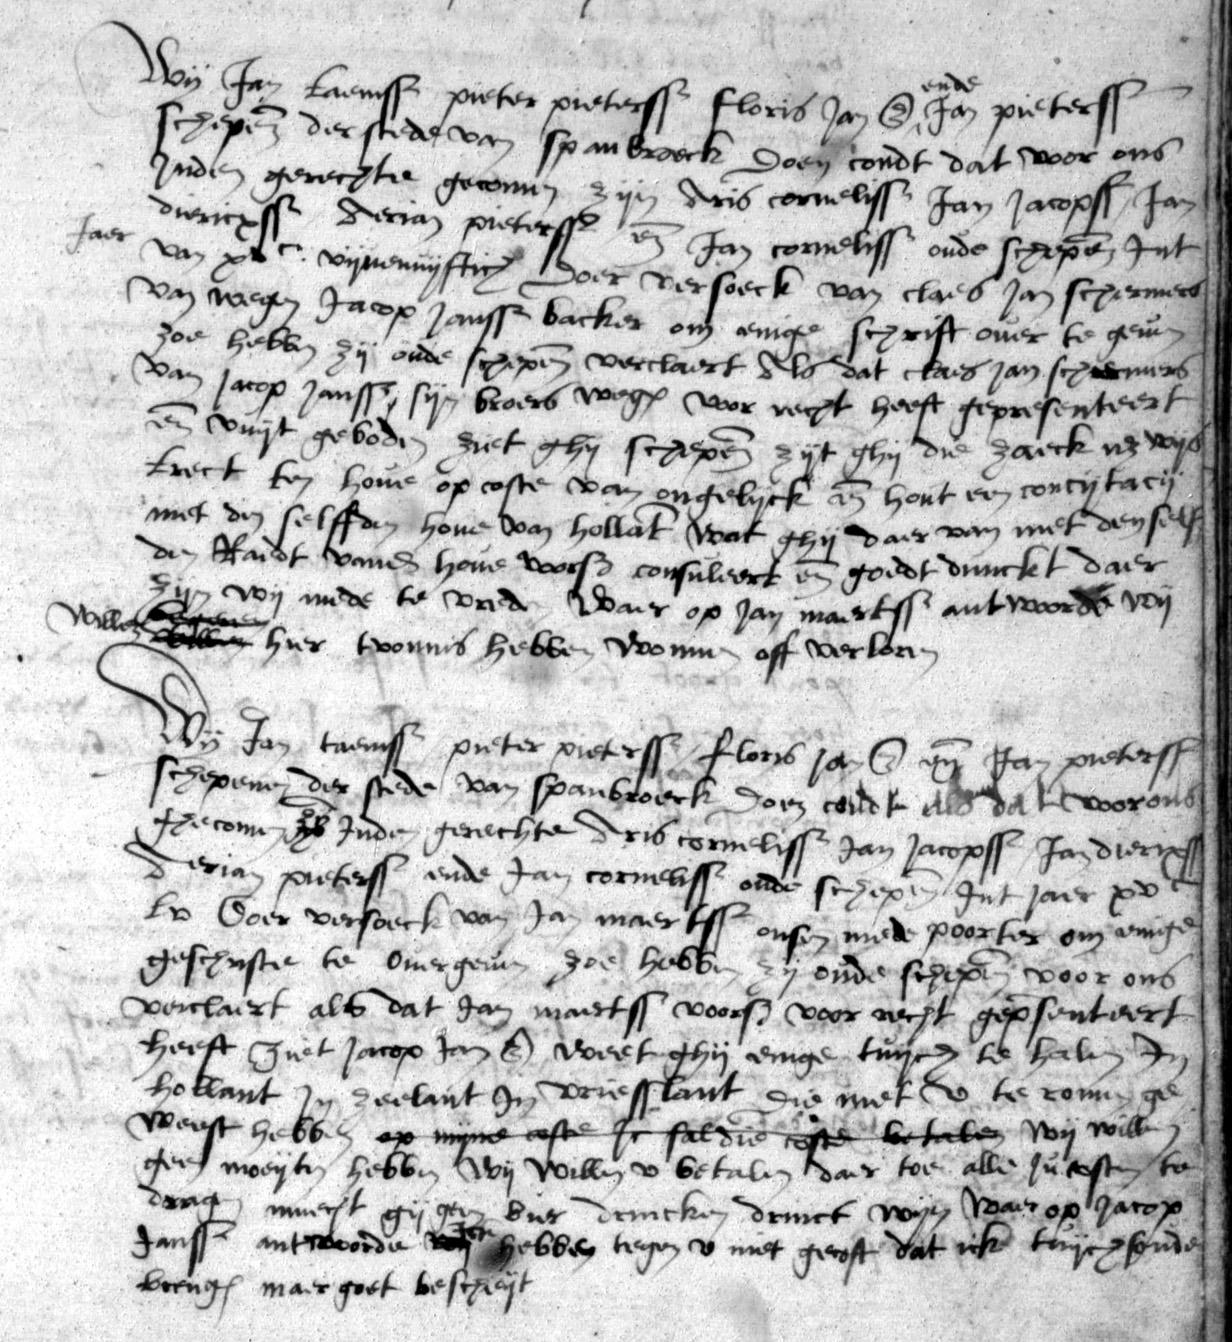 Wij Jan taemss pieter pieterss floris Jan S ende Jan pieterss
schepen der stede van spanbroeck Doen condt dat voor ons
Inden gerechte gecomen zijn Aris corneliss Jan Jacopss Jan
diericxss Aerian pieterss en Jan corneliss oude schepen Int
Jaer van xvc vijvenvijftich Doer versoeck van claes Jan schermers
van wegen Jacop Janss backer om enige schrift over te geven
zoe hebben zij oude schepen verclaert Als dat claes Jan schermers
van Jacop Janss sijn broers wegen voor recht heeft gepresenteert
en vuijt geboden ziet ghij schepen zijt ghij die zaeck wijs
trect ten hove op coste van ongelijck en hout een concijtacij
met den selffden hove van hollant wat ghij daer van met den self
den Raedt vanden hove voors consuleert en goedt dunckt daer
zijn wij mede te vreden Waer op Jan maertss antwoorde wij
willen hier tvonnis hebben wonnen off verloren
Wij Jan taemss pieter pieterss floris Jan S en Jan pieterss
schepenen der stede van spanbroeck Doen condt als dat voor ons
ghecomen zijn Inden gerechte Aris corneliss Jan Jacopss Jan dierixss
Aerian pieterss ende Jan corneliss oude schepen Int Jaer xvc
Lv Doer versoeck van Jan maertss onsen mede poorter om enige
geschrifte te overgeven zoe hebben zij oude schepen voor ons
verclaert als dat Jan maertss voors voor recht gepresenteert
heeft ziet Jacop Jan S weet ghij enige tuijch te halen In
hollant In zeelant In vriesslant die met u te comen ge
weest hebben op mijne coste Ic sal die coste betalen wij willen
geen moeijten hebben wij willen u betalen daer toe alle costen te
dragen muecht gij geen bier drincken drinct wijn waer op Jacop
Janss antwoorde hebben tegen u niet gecoft dat ick tuijch soude
brengen maer goet bescheijt